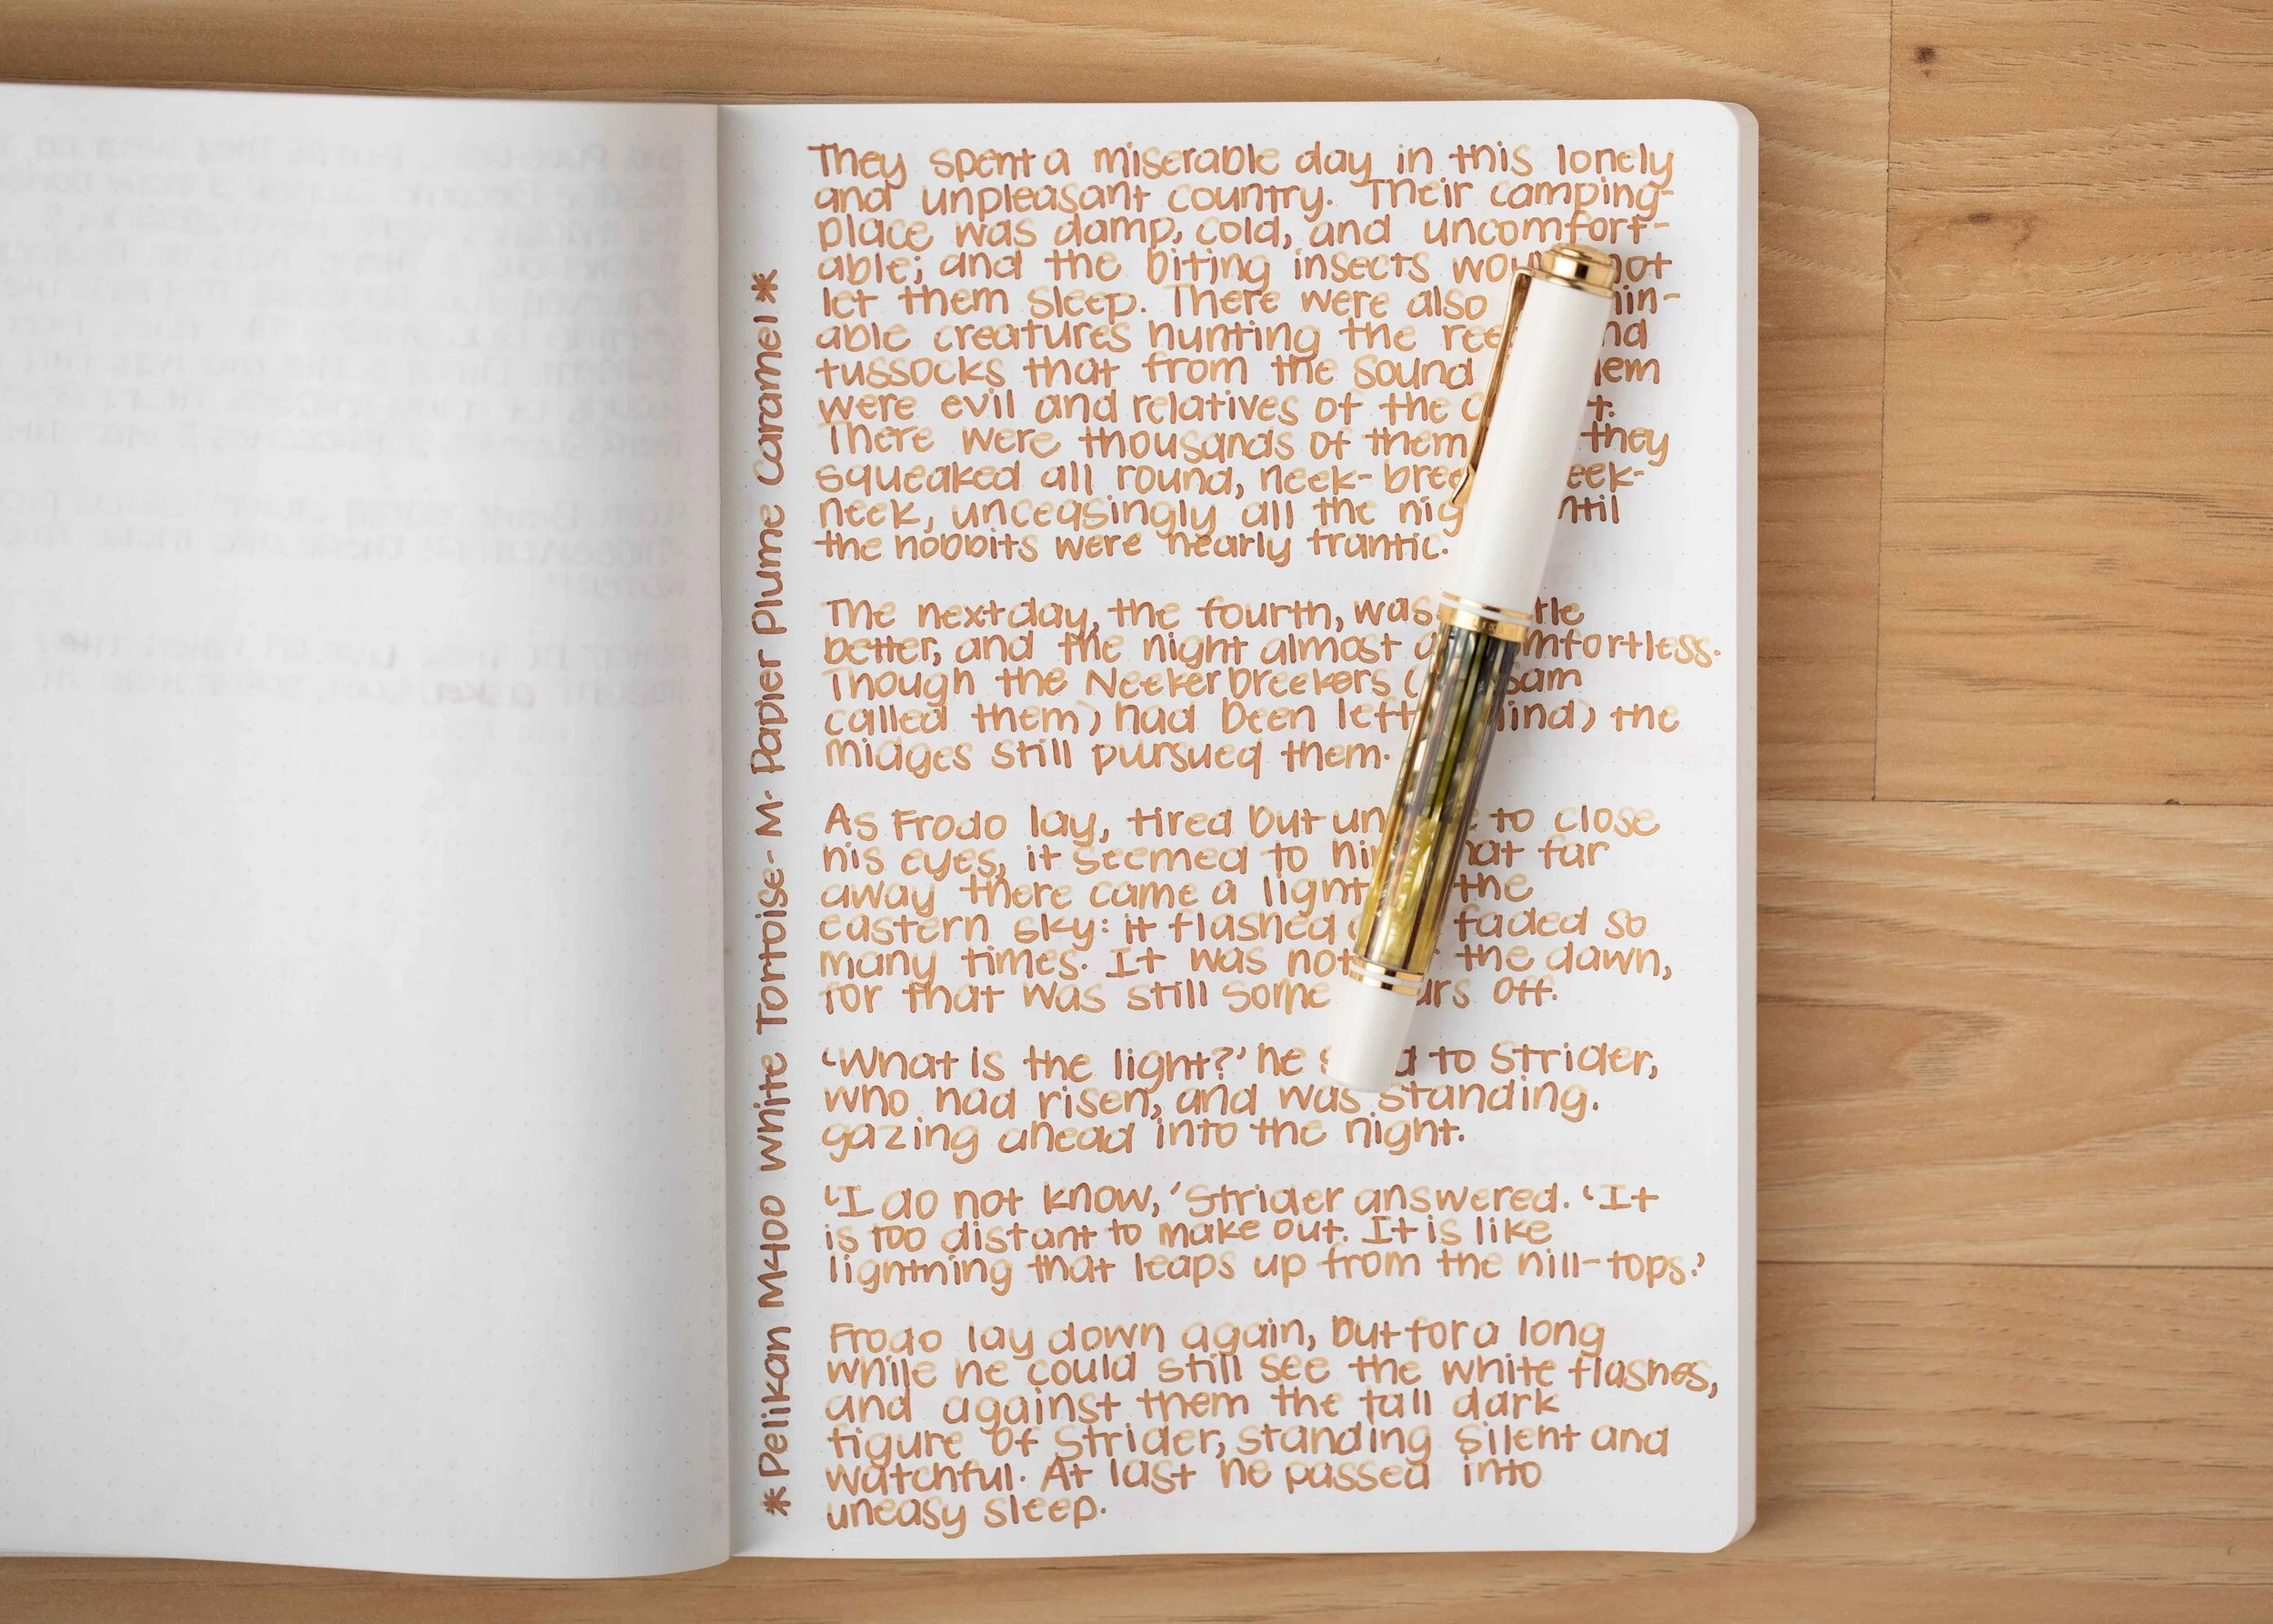 They spent a miserable day in this lonely
and unpleasant country. Their camping-
place was damp, cold, and uncomfort-
able; and the biting insects not
let them sleep. There were also
able creatures hunting the
tussocks that from the sound
were evil and relatives of the
There were thousands of them they
squeaked all round, neek-
neek, unceasingly all the
the hobbits were nearly frantic.
The next day, the fourth, was
better, and the night almost
Though the Neekerbreekers ( Sam
called them) had been left the
midges still pursued them.
As Frodo lay, tired but to close
his eyes, it seemed to far
away there came a light the
eastern sky: it flashed faded so
many times. It was not the dawn,
for that was still some off.
‘What is the light?’ he to Strider,
who had risen, and was standing.
gazing ahead into the night.
‘I do not know,’ Strider answered. ‘It
is too distant to make out. It is like
lightning that leaps up from the hill-tops.’
Frodo lay down again, but for a long
while he could still see the white flashes,
and against them the tall dark
figure of Strider, standing silent and
watchful. At last he passed into
uneasy sleep.
*Pelikan M400 White Tortoise- M· Papier Plume Caramel*